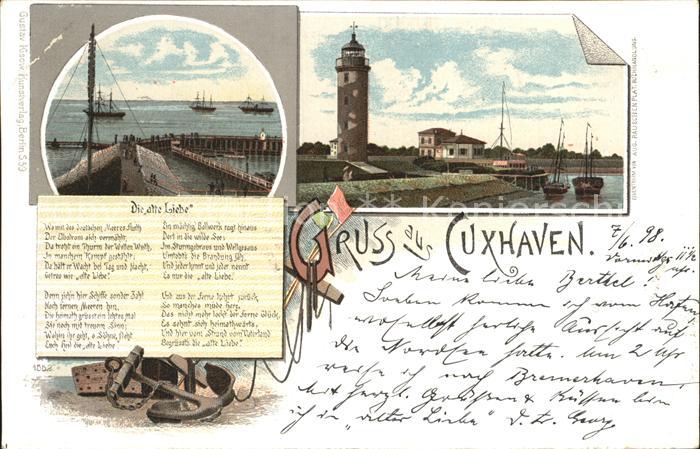 Gustav Kisow, Kunstverlag, Berlin S 59
GRUSS aus CUXHAVEN.
Die „alte Liebe“
Wo mit des deutschen Meeres Fluth
Der Elbstrom sich vermählt,
Da trotzt ein Thurm der Wellen Wuth,
In manchem Kampf gestählt;
Da hält er Wacht bei Tag und Nacht,
Getreu wie „alte Liebe“.
Ein mächtig Bollwerk ragt hinaus
Dort in die wilde See;
Im Sturmgebraus und Wellgesaus
Umtobts die Brandung jäh,
Und jeder kennt und jeder nennt
Es nur die „alte Liebe“.
Denn ziehn hier Schiffe sonder Zahl
Nach fernen Meeren hin,
Die Heimath grüsst ein letztes mal
Sie noch mit treuem Sinn:
Wohin ihr geht, o Söhne, fleht
Euch hier die „alte Liebe“
Und aus der Ferne kehrt zurück
So manches müde Herz,
Das nicht mehr lockt der ferne Glück,
Es sehnt sich heimathwärts,
Und hier vom Strand vom Vaterland
Begrüssts die „alte Liebe“.
1562
7/6. 98.
11 1/2
Uhr
Meine liebe Berthel!
Soeben komme ich vom Hafen
woselbst herrliche Aussicht auf
die Nordsee hatte. Um 2 Uhr
reise ich nach Bremerhaven.
Mit herzl. Grüssen & Küssen bin
ich die „alte Liebe“ D. tr. Georg